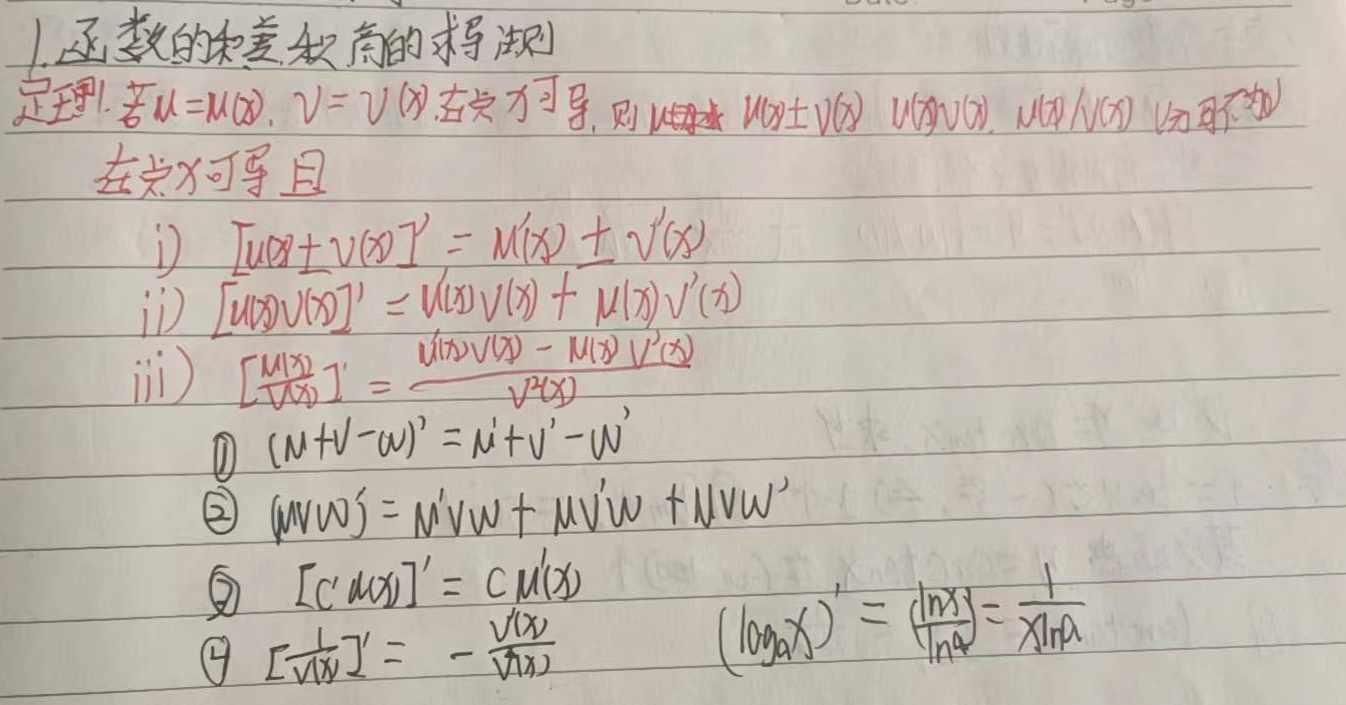 1.函数的和差积商的求导法则
定理1.若u=u(x), v=v(x)在点x可导,则 u(x)±v(x) u(x)v(x), u(x)/v(x)
在点x可导且
i) [u(x)±v(x)]' = u'(x) ± v'(x)
ii) [u(x)v(x)]' = u'(x)v(x) + u(x)v'(x)
iii) [u(x)/v(x)]' = (u'(x)v(x) - u(x)v'(x))/v²(x)
① (u+v-w)' = u'+v'-w'
② (uvw)' = u'vw + uv'w + uvw'
③ [c u(x)]' = c u'(x)
④ [1/v(x)]' = - v'(x)/v²(x) (logₐx)' = (lnx/lna)' = 1/(xlna)